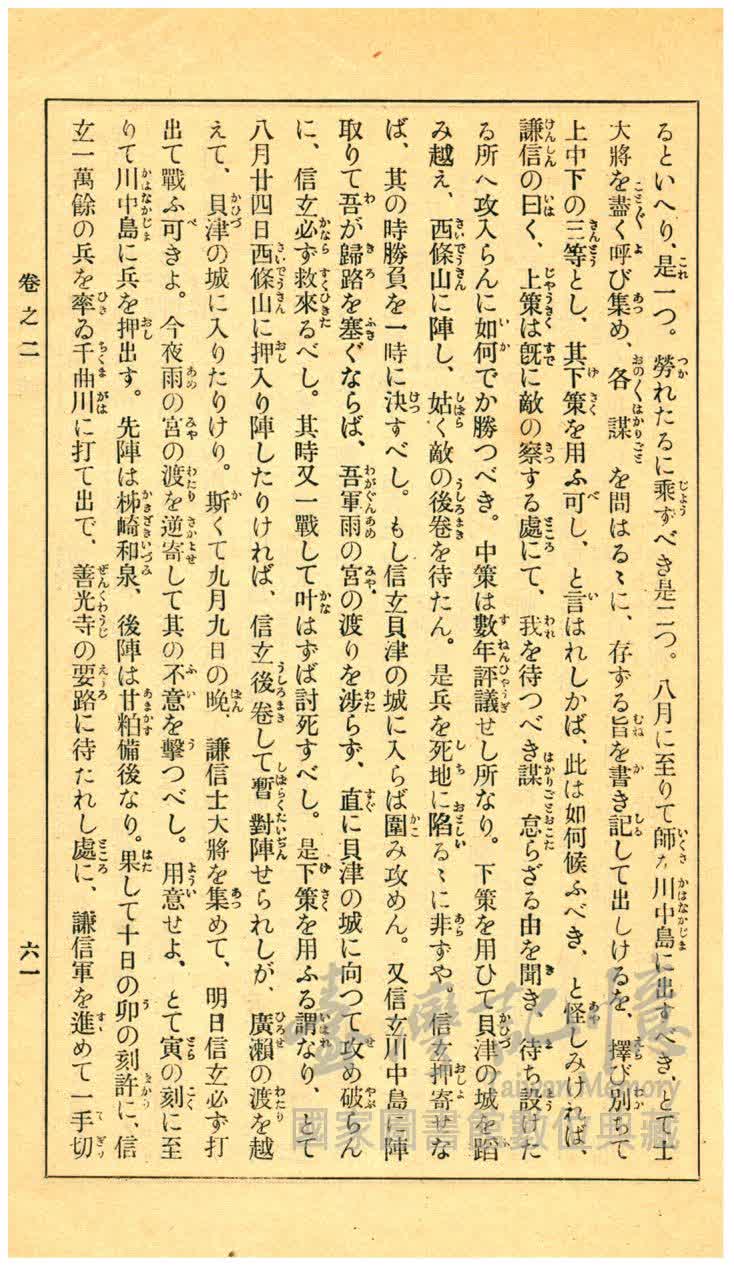 るといへり、是一つ。勞れたるに乘ずべき是二つ。八月に至りて師を川中島に出すべき、とて士
大將を盡く呼び集め、各謀を問はるゝに、存ずる旨を書き記して出しけるを、擇び別ちて
上中下の三等とし、其下策を用ふ可し、と言はれしかば、此は如何候ふべき、と怪しみければ、
謙信の曰く、上策は旣に敵の察する處にて、我を待つべき謀怠らざる由を聞き、待ち設けた
る所へ攻入らんに如何でか勝つべき。中策は數年評議せし所なり。下策を用ひて貝津の城を蹈
み越え、西條山に陣し、姑く敵の後卷を待たん。是兵を死地に陷るゝに非ずや。信玄押寄せな
ば、其の時勝負を一時に決すべし。もし信玄貝津の城に入らば圍み攻めん。又信玄川中島に陣
取りて吾が歸路を塞ぐならば、吾軍雨の宮の渡りを涉らず、直に貝津の城に向つて攻め破らん
に、信玄必ず救來るべし。其時又一戰して叶はずば討死すべし。是下策を用ふる謂なり、とて
八月廿四日西條山に押入り陣したりければ、信玄後卷して暫對陣せられしが、廣瀨の渡を越
えて、貝津の城に入りたりけり。斯くて九月九日の晚、謙信士大將を集めて、明日信玄必ず打
出て戰ふ可きよ。今夜雨の宮の渡を逆寄して其の不意を擊つべし。用意せよ、とて寅の刻に至
りて川中島に兵を押出す。先陣は柹崎和泉、後陣は甘粕備後なり。果して十日の卯の刻許に、信
玄一萬餘の兵を率ゐ千曲川に打て出で、善光寺の要路に待たれし處に、謙信軍を進めて一手切
卷之二
六一
臺灣記憶
Taiwan Memory
國家圖書館數位典藏